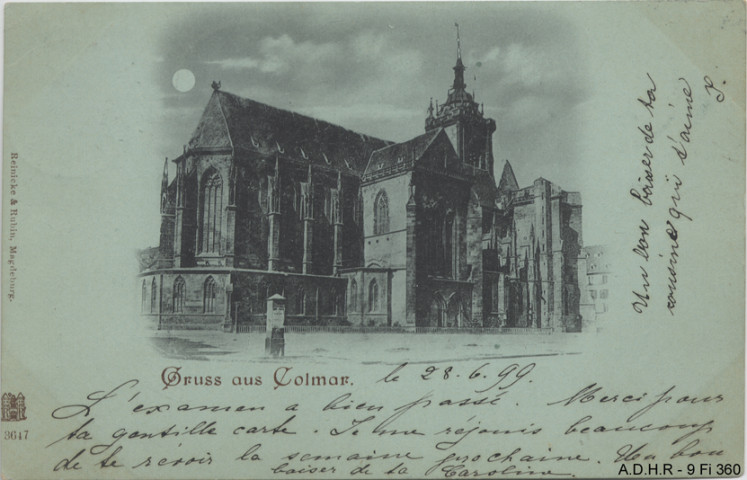 Un bon baiser de ta
cousine qui t'aime
Reinicke & Rubin, Magdeburg.
Gruss aus Colmar. le 28.6.99.
L'examen a bien passé. Merci pour
ta gentille carte. Je me réjouis beaucoup
de te revoir la semaine prochaine. Un bon
baiser de ta Caroline.
3647
A.D.H.R - 9 Fi 360